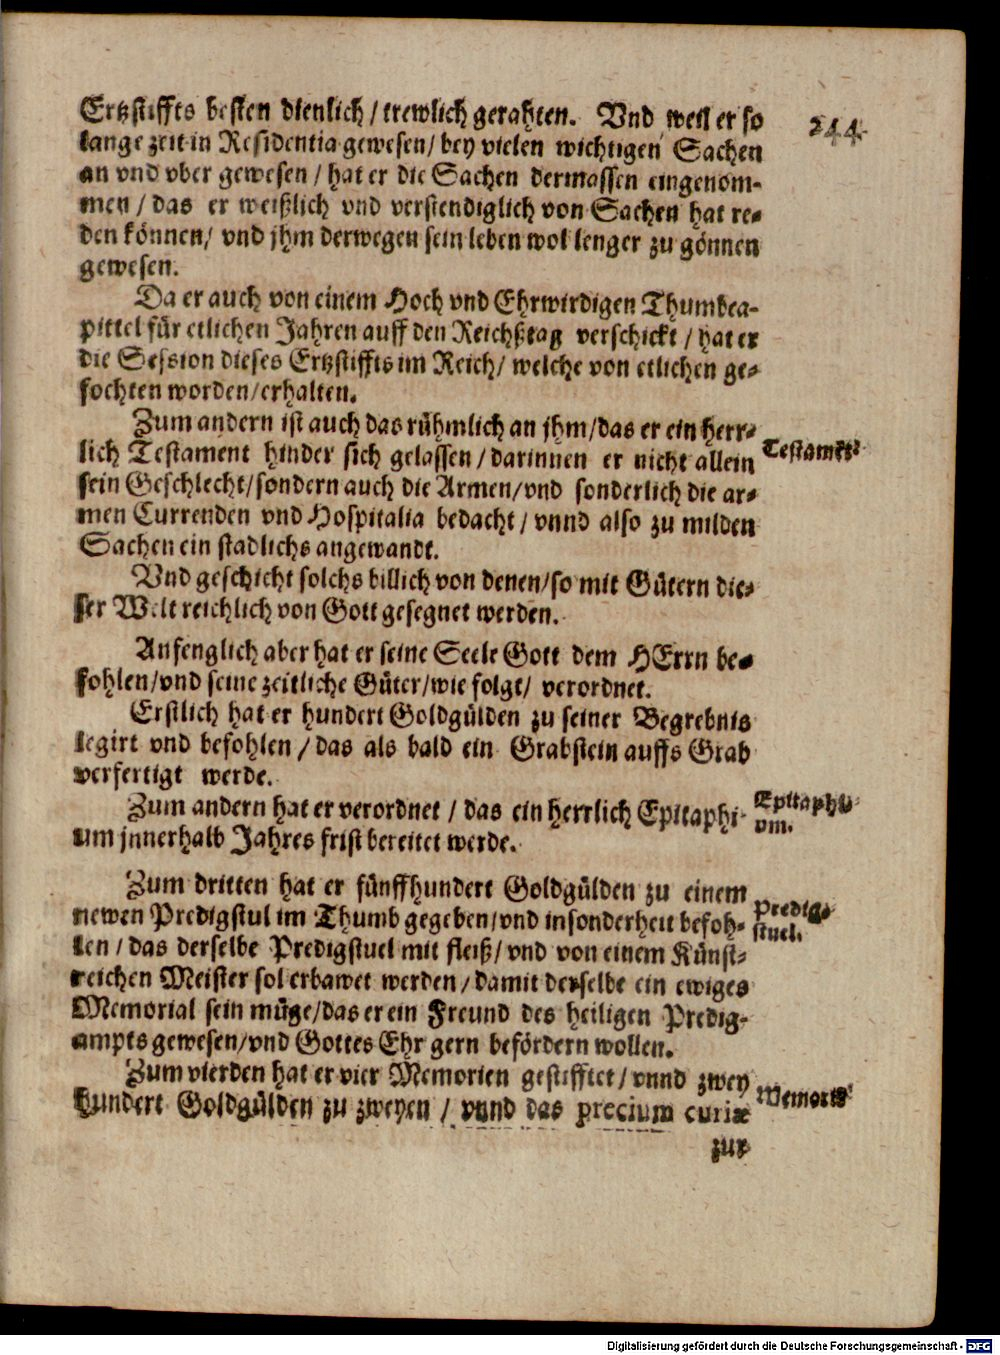 Ertzstiffts besten dienlich / trewlich gerahten. Vnd weil er so
244
lange zeit in Residentia gewesen / bey vielen wichtigen Sachen
an vnd vber gewesen / hat er die Sachen dermassen eingenom-
men / das er weißlich vnd verstendiglich von Sachen hat re-
den können / vnd jhm derwegen sein leben wol lenger zu gönnen
gewesen.
Da er auch von einem Hoch vnd Ehrwirdigen Thumbca-
pittel für etlichen Jahren auff den Reichßtag verschickt / hat er
die Session dieses Ertzstiffts im Reich / welche von etlichen ge-
fochten worden / erhalten.
Zum andern ist auch das rühmlich an jhm / das er ein herr-
lich Testament hinder sich gelassen / darinnen er nicht allein
Testament
sein Geschlecht / sondern auch die Armen / vnd sonderlich die ar-
men Currenden vnd Hospitalia bedacht / vnnd also zu milden
Sachen ein stadlichs angewandt.
Vnd geschicht solchs billich von denen / so mit Gütern die-
ser Welt reichlich von Gott gesegnet werden.
Anfenglich aber hat er seine Seele Gott dem HErrn be-
fohlen / vnd seine zeitliche Güter / wie folgt / verordnet.
Erstlich hat er hundert Goldgülden zu seiner Begrebnis
legirt vnd befohlen / das als bald ein Grabstein auffs Grab
verfertigt werde.
Zum andern hat er verordnet / das ein herrlich Epitaphi-
um jnnerhalb Jahres frist bereitet werde.
Epitaphi-
um.
Zum dritten hat er fünffhundert Goldgülden zu einem
newen Predigstul im Thumb gegeben / vnd insonderheit befoh-
len / das derselbe Predigstuel mit fleiß / vnd von einem Künst-
Predig-
stuel.
reichen Meister sol erbawet werden / damit derselbe ein ewiges
Memorial sein müge / das er ein Freund des heiligen Predig-
ampts gewesen / vnd Gottes Ehr gern befördern wollen.
Zum vierden hat er vier Memorien gestifftet / vnnd zwey
hundert Goldgülden zu zweyen / vnnd das precium curiæ
zur
Digitalisierung gefördert durch die Deutsche Forschungsgemeinschaft - DFG